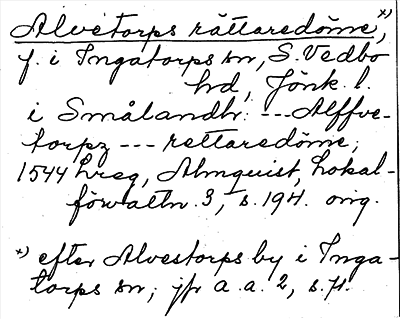 Alvetorps rättaredöme, x)
f. i Ingatorps sn, S. Vedbo
hd, Jönk. l.
i Smålandh: --- Alffve-
torpz --- rettaredöme,
1544 hreg, Almquist, Lokal-
förvaltn. 3, s. 194. orig.
x) efter Alvestorps by i Inga-
torps sn; jfr a. a. 2, s. 71.